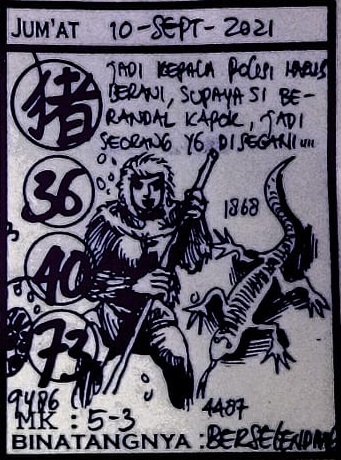 JUM'AT 10-SEPT-2021
JADI KEPALA POLISI HARUS
BERANI, SUPAYA SI BE-
RANDAL KAPOK, JADI
SEORANG YG DISEGANI....
猪
36
1868
40
73
9486
4487
MK : 5-3
BINATANGNYA : BERSELENDANG